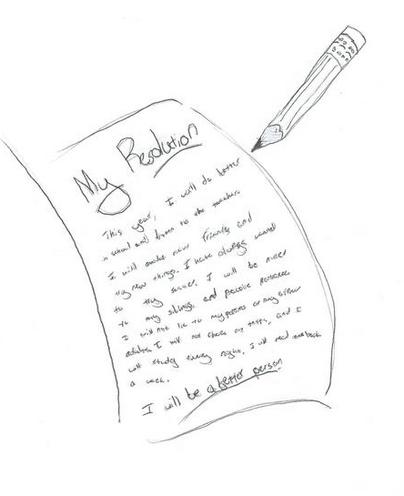 My Resolution
This year, I will do better
in school and listen to the teachers
I will make new friends and
try new things. I have always wanted
to try soccer. I will be nicer
to my siblings, and
I will not lie to my parents or my other
I will not cheat on tests, and I
will study every night. I will read one book
a week.
I will be a better person